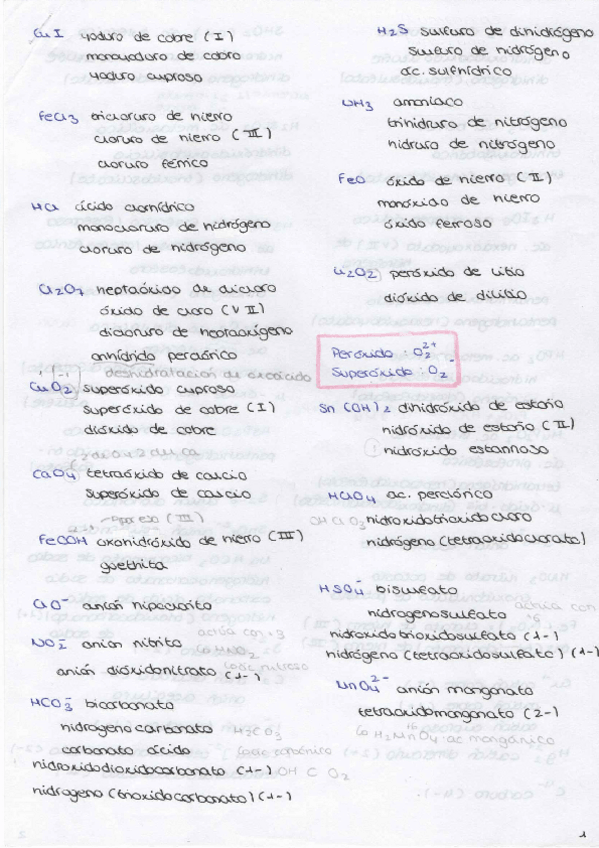 CuI yoduro de cobre (I)
monoyoduro de cobre
yoduro cuproso
FeCl3 tricloruro de hierro
cloruro de hierro (III)
cloruro férrico
HCl ácido clorhídrico
monocloruro de hidrógeno
cloruro de hidrógeno
Cl2O7 heptaóxido de dicloro
óxido de cloro (VII)
dicloruro de heptaoxígeno
anhídrido perclórico
deshidratación de oxoácido
CuO2 superóxido cuproso
superóxido de cobre (I)
dióxido de cobre
CaO4 tetraóxido de calcio
superóxido de calcio
FeOOH oxohidróxido de hierro (III)
goethita
ClO⁻ anión hipoclorito
NO2⁻ anión nitrito
actúa con +3
HNO2
anión dióxidonitrato (1-)
(ácido nitroso)
HCO3⁻ bicarbonato
hidrógeno carbonato H2CO3
carbonato ácido (ácido carbónico
hidroxidodioxidocarbonato (1-) OH C O2
hidrogeno (trioxidocarbonato) (1-)
H2S sulfuro de dihidrógeno
sulfuro de hidrógeno
ác. sulfhídrico
NH3 amoníaco
trihidruro de nitrógeno
hidruro de nitrógeno
FeO óxido de hierro (II)
monóxido de hierro
óxido ferroso
Li2O2 peróxido de litio
dióxido de dilitio
Peróxido: O2²⁺
Superóxido: O2⁻
Sn(OH)2 dihidróxido de estaño
hidróxido de estaño (II)
hidróxido estannoso
HClO4 ac. perclórico
OHClO3 hidroxidotrioxidocloro
hidrógeno (tetraoxidoclorato)
HSO4⁻ bisulfato
hidrogenosulfato
actúa con +6
hidroxidotrioxidosulfato (1-)
hidrógeno (tetraoxidosulfato) (1-)
MnO4²⁻ anión manganato
tetraoxidomanganato (2-)
H2MnO4: ac mangánico
1